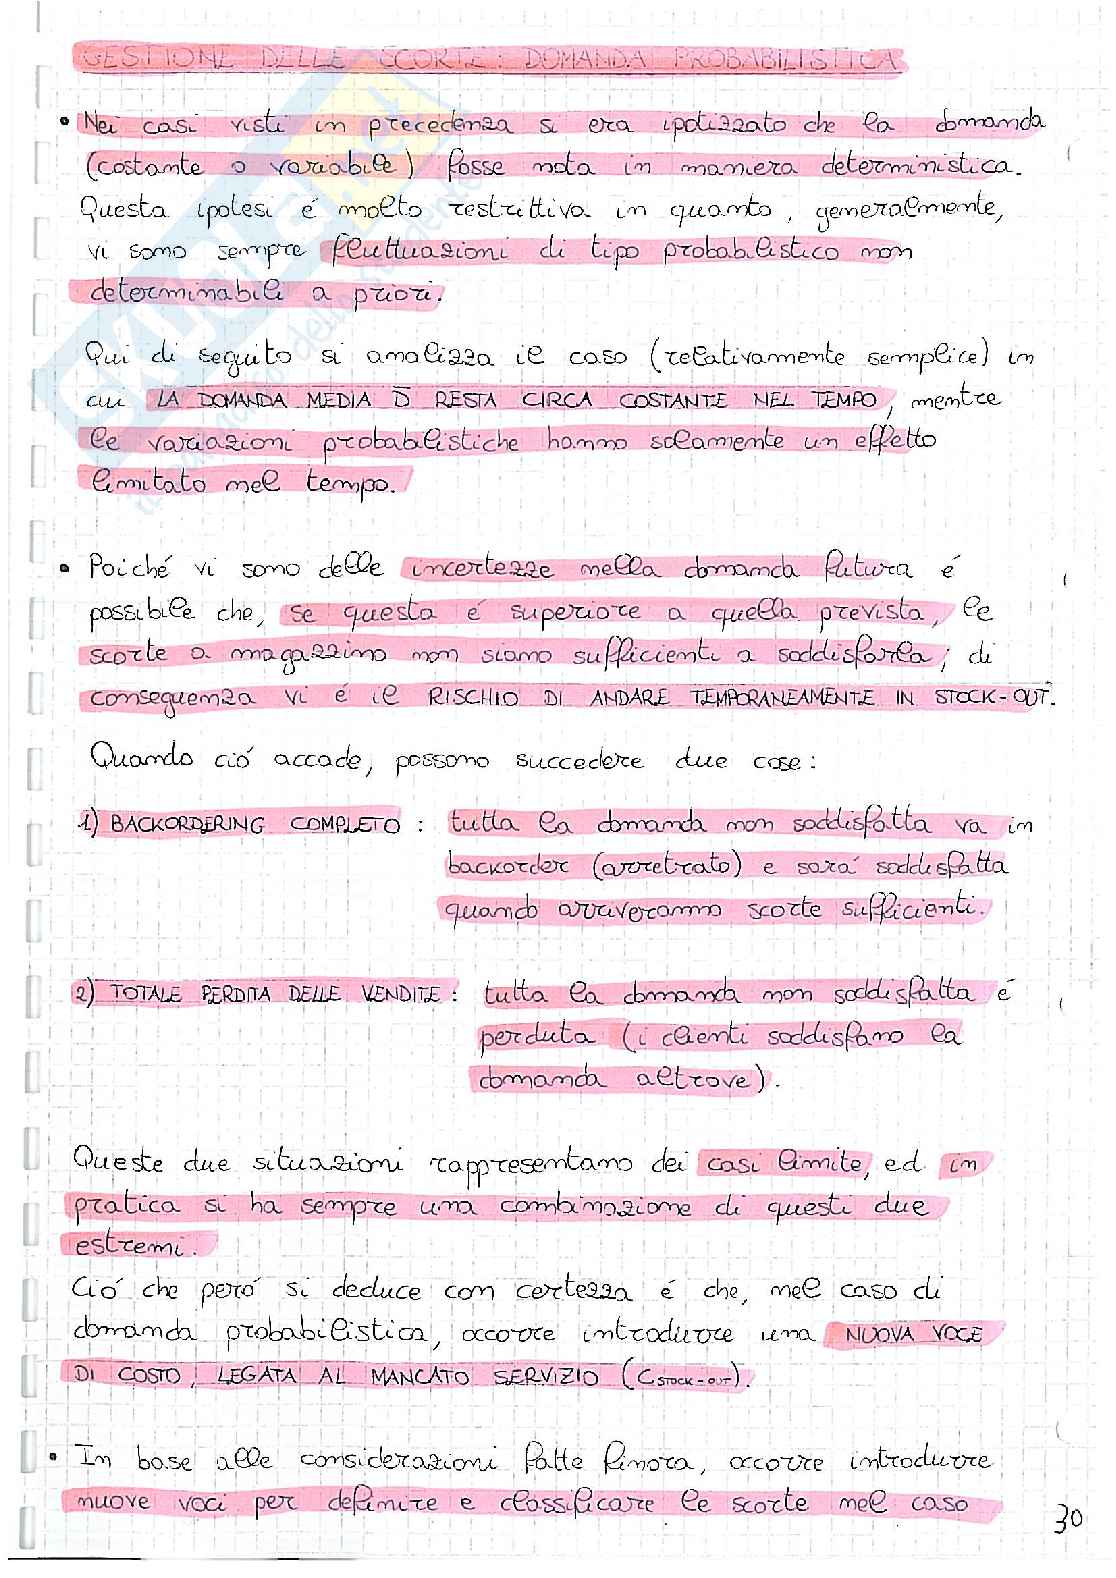 GESTIONE DELLE SCORTE: DOMANDA PROBABILISTICA
• Nei casi visti in precedenza si era ipotizzato che la domanda
(costante o variabile) fosse nota in maniera deterministica.
Questa ipotesi é molto restrittiva in quanto, generalmente,
vi sono sempre fluttuazioni di tipo probabilistico non
determinabili a priori.
Qui di seguito si analizza il caso (relativamente semplice) in
cui LA DOMANDA MEDIA D̄ RESTA CIRCA COSTANTE NEL TEMPO, mentre
le variazioni probabilistiche hanno solamente un effetto
limitato nel tempo.
• Poiché vi sono delle incertezze nella domanda futura é
possibile che, se questa é superiore a quella prevista, le
scorte a magazzino non siano sufficienti a soddisfarla; di
conseguenza vi é il RISCHIO DI ANDARE TEMPORANEAMENTE IN STOCK-OUT.
Quando ció accade, possono succedere due cose:
1) BACKORDERING COMPLETO: tutta la domanda non soddisfatta va in
backorder (arretrato) e sará soddisfatta
quando arriveranno scorte sufficienti.
2) TOTALE PERDITA DELLE VENDITE: tutta la domanda non soddisfatta é
perduta (i clienti soddisfano la
domanda altrove).
Queste due situazioni rappresentano dei casi limite, ed in
pratica si ha sempre una combinazione di questi due
estremi.
Ció che peró si deduce con certezza é che, nel caso di
domanda probabilistica, occorre introdurre una NUOVA VOCE
DI COSTO, LEGATA AL MANCATO SERVIZIO (CSTOCK-OUT).
• In base alle considerazioni fatte finora, occorre introdurre
nuove voci per definire e classificare le scorte nel caso
30